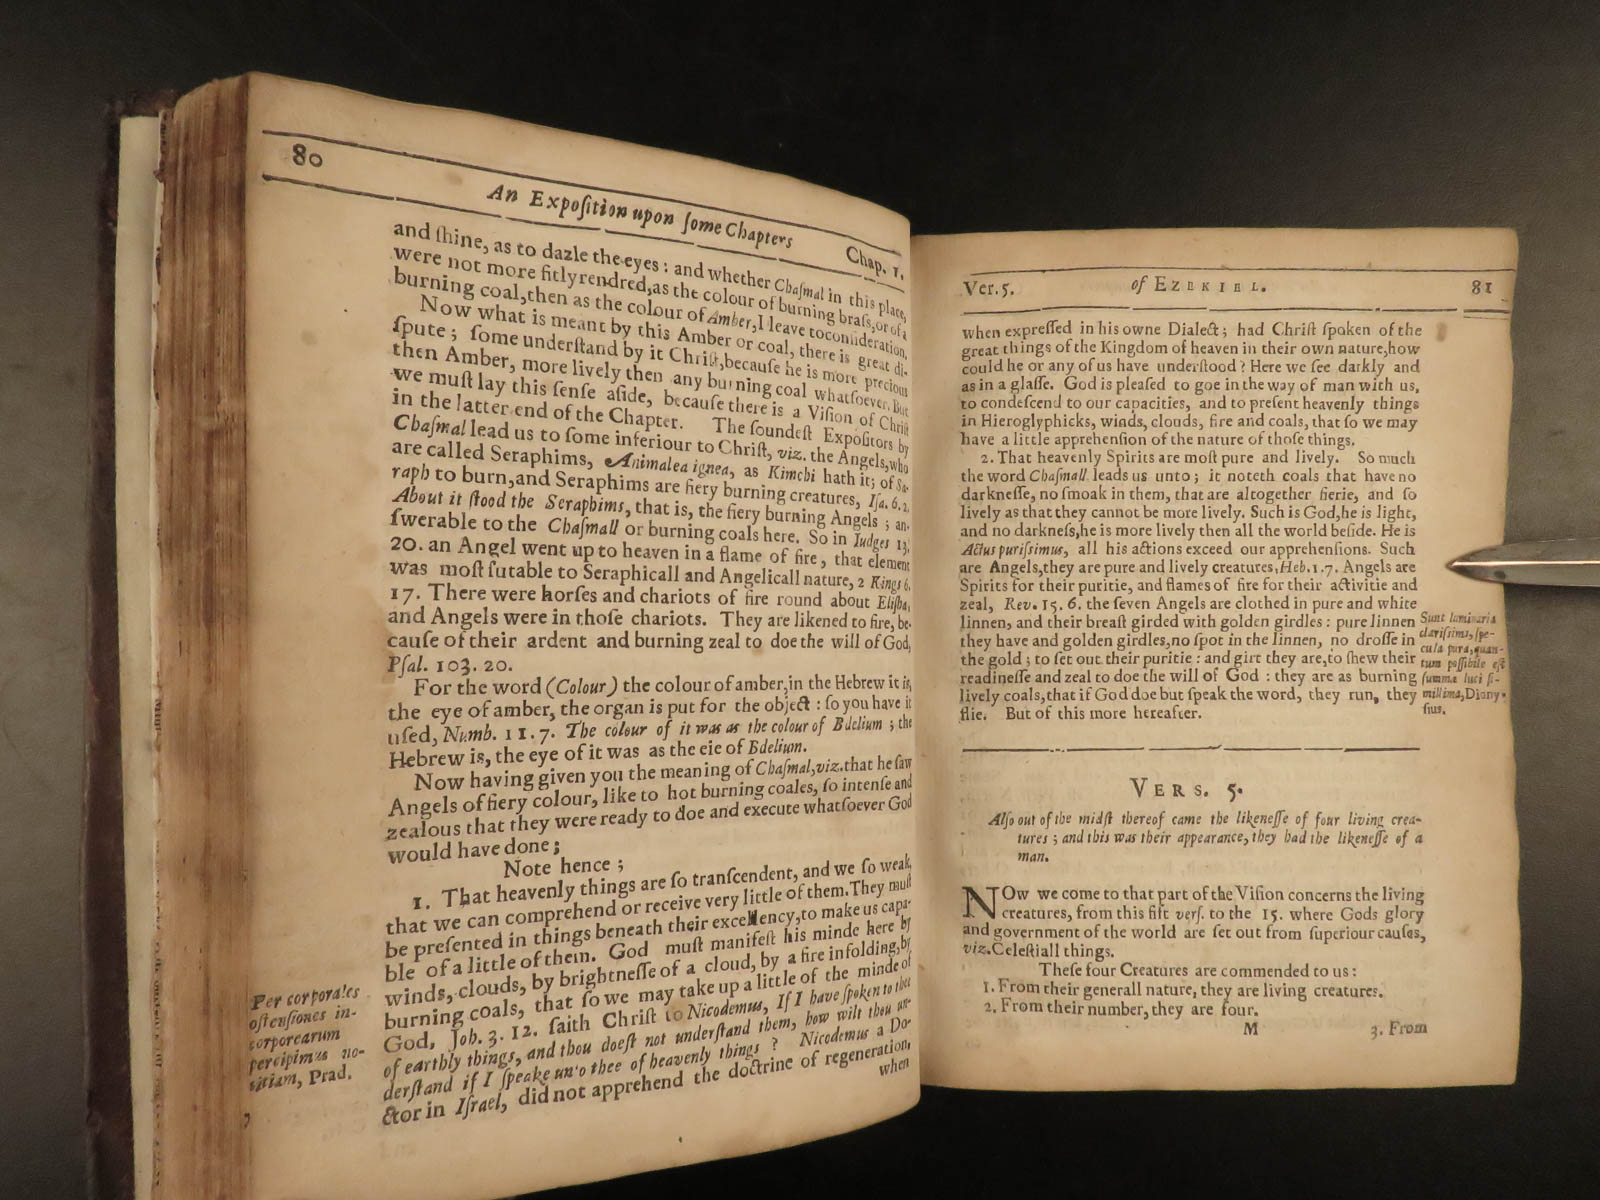 80
An Expoſition upon ſome Chapters
Chap. 1.
and ſhine, as to dazle the eyes : and whether Chaſmal in this place,
were not more fitly rendred, as the colour of burning braſs, or of a
burning coal, then as the colour of Amber, I leave to conſideration.
Now what is meant by this Amber or coal, there is great di-
ſpute ; ſome underſtand by it Chriſt, becauſe he is more precious
then Amber, more lively then any burning coal whatſoever. But
we muſt lay this ſenſe aſide, becauſe there is a Viſion of Chriſt
in the latter end of the Chapter. The ſoundeſt Expoſitors by
Chaſmal lead us to ſome inferiour to Chriſt, viz. the Angels, who
are called Seraphims, Animalea ignea, as Kimchi hath it; of Sa-
raph to burn, and Seraphims are fiery burning creatures, Iſa. 6. 2.
About it ſtood the Seraphims, that is, the fiery burning Angels ; an-
ſwerable to the Chaſmall or burning coals here. So in Judges 13.
20. an Angel went up to heaven in a flame of fire, that element
was moſt ſutable to Seraphicall and Angelicall nature, 2 Kings 6.
17. There were horſes and chariots of fire round about Eliſha,
and Angels were in thoſe chariots. They are likened to fire, be-
cauſe of their ardent and burning zeal to doe the will of God,
Pſal. 103. 20.
For the word (Colour) the colour of amber, in the Hebrew it is,
the eye of amber, the organ is put for the object : ſo you have it
uſed, Numb. 11. 7. The colour of it was as the colour of Bdelium ; the
Hebrew is, the eye of it was as the eie of Bdelium.
Now having given you the meaning of Chaſmal, viz. that he ſaw
Angels of fiery colour, like to hot burning coales, ſo intenſe and
zealous that they were ready to doe and execute whatſoever God
would have done ;
Note hence ;
1. That heavenly things are ſo tranſcendent, and we ſo weak,
that we can comprehend or receive very little of them. They muſt
be preſented in things beneath their excellency, to make us capa-
ble of a little of them. God muſt manifeſt his minde here by
winds, clouds, by brightneſſe of a cloud, by a fire infolding, by
burning coals, that ſo we may take up a little of the minde of
God, Joh. 3. 12. ſaith Chriſt to Nicodemus, If I have ſpoken to thee
of earthly things, and thou doeſt not underſtand them, how wilt thou un-
derſtand if I ſpeake unto thee of heavenly things ? Nicodemus a Do-
ctor in Iſrael, did not apprehend the doctrine of regeneration,
when
Per corporales
oſtenſiones in-
corporearum
percipimus no-
titiam, Prad.
Ver. 5.
of EZEKIEL.
81
when expreſſed in his owne Dialect ; had Chriſt ſpoken of the
great things of the Kingdom of heaven in their own nature, how
could he or any of us have underſtood ? Here we ſee darkly and
as in a glaſſe. God is pleaſed to goe in the way of man with us,
to condeſcend to our capacities, and to preſent heavenly things
in Hieroglyphicks, winds, clouds, fire and coals, that ſo we may
have a little apprehenſion of the nature of thoſe things.
2. That heavenly Spirits are moſt pure and lively. So much
the word Chaſmall leads us unto ; it noteth coals that have no
darkneſſe, no ſmoak in them, that are altogether fierie, and ſo
lively as that they cannot be more lively. Such is God, he is light,
and no darkneſs, he is more lively then all the world beſide. He is
Actus puriſsimus, all his actions exceed our apprehenſions. Such
are Angels, they are pure and lively creatures, Heb. 1. 7. Angels are
Spirits for their puritie, and flames of fire for their activitie and
zeal, Rev. 15. 6. the ſeven Angels are clothed in pure and white
linnen, and their breaſt girded with golden girdles : pure linnen
they have and golden girdles, no ſpot in the linnen, no droſſe in
the gold ; to ſet out their puritie : and girt they are, to ſhew their
readineſſe and zeal to doe the will of God : they are as burning
lively coals, that if God doe but ſpeak the word, they run, they
flie. But of this more hereafter.
Sunt luminaria
clariſſima, ſpe-
cula pura, quan-
tum poſſibile eſt
ſummæ luci ſi-
millima, Diony-
ſius.
VERS. 5.
Alſo out of the midſt thereof came the likeneſſe of four living crea-
tures ; and this was their appearance, they had the likeneſſe of a
man.
NOw we come to that part of the Viſion concerns the living
creatures, from this fift verſ. to the 15. where Gods glory
and government of the world are ſet out from ſuperiour cauſes,
viz. Celeſtiall things.
Theſe four Creatures are commended to us :
1. From their generall nature, they are living creatures.
2. From their number, they are four.
M
3. From